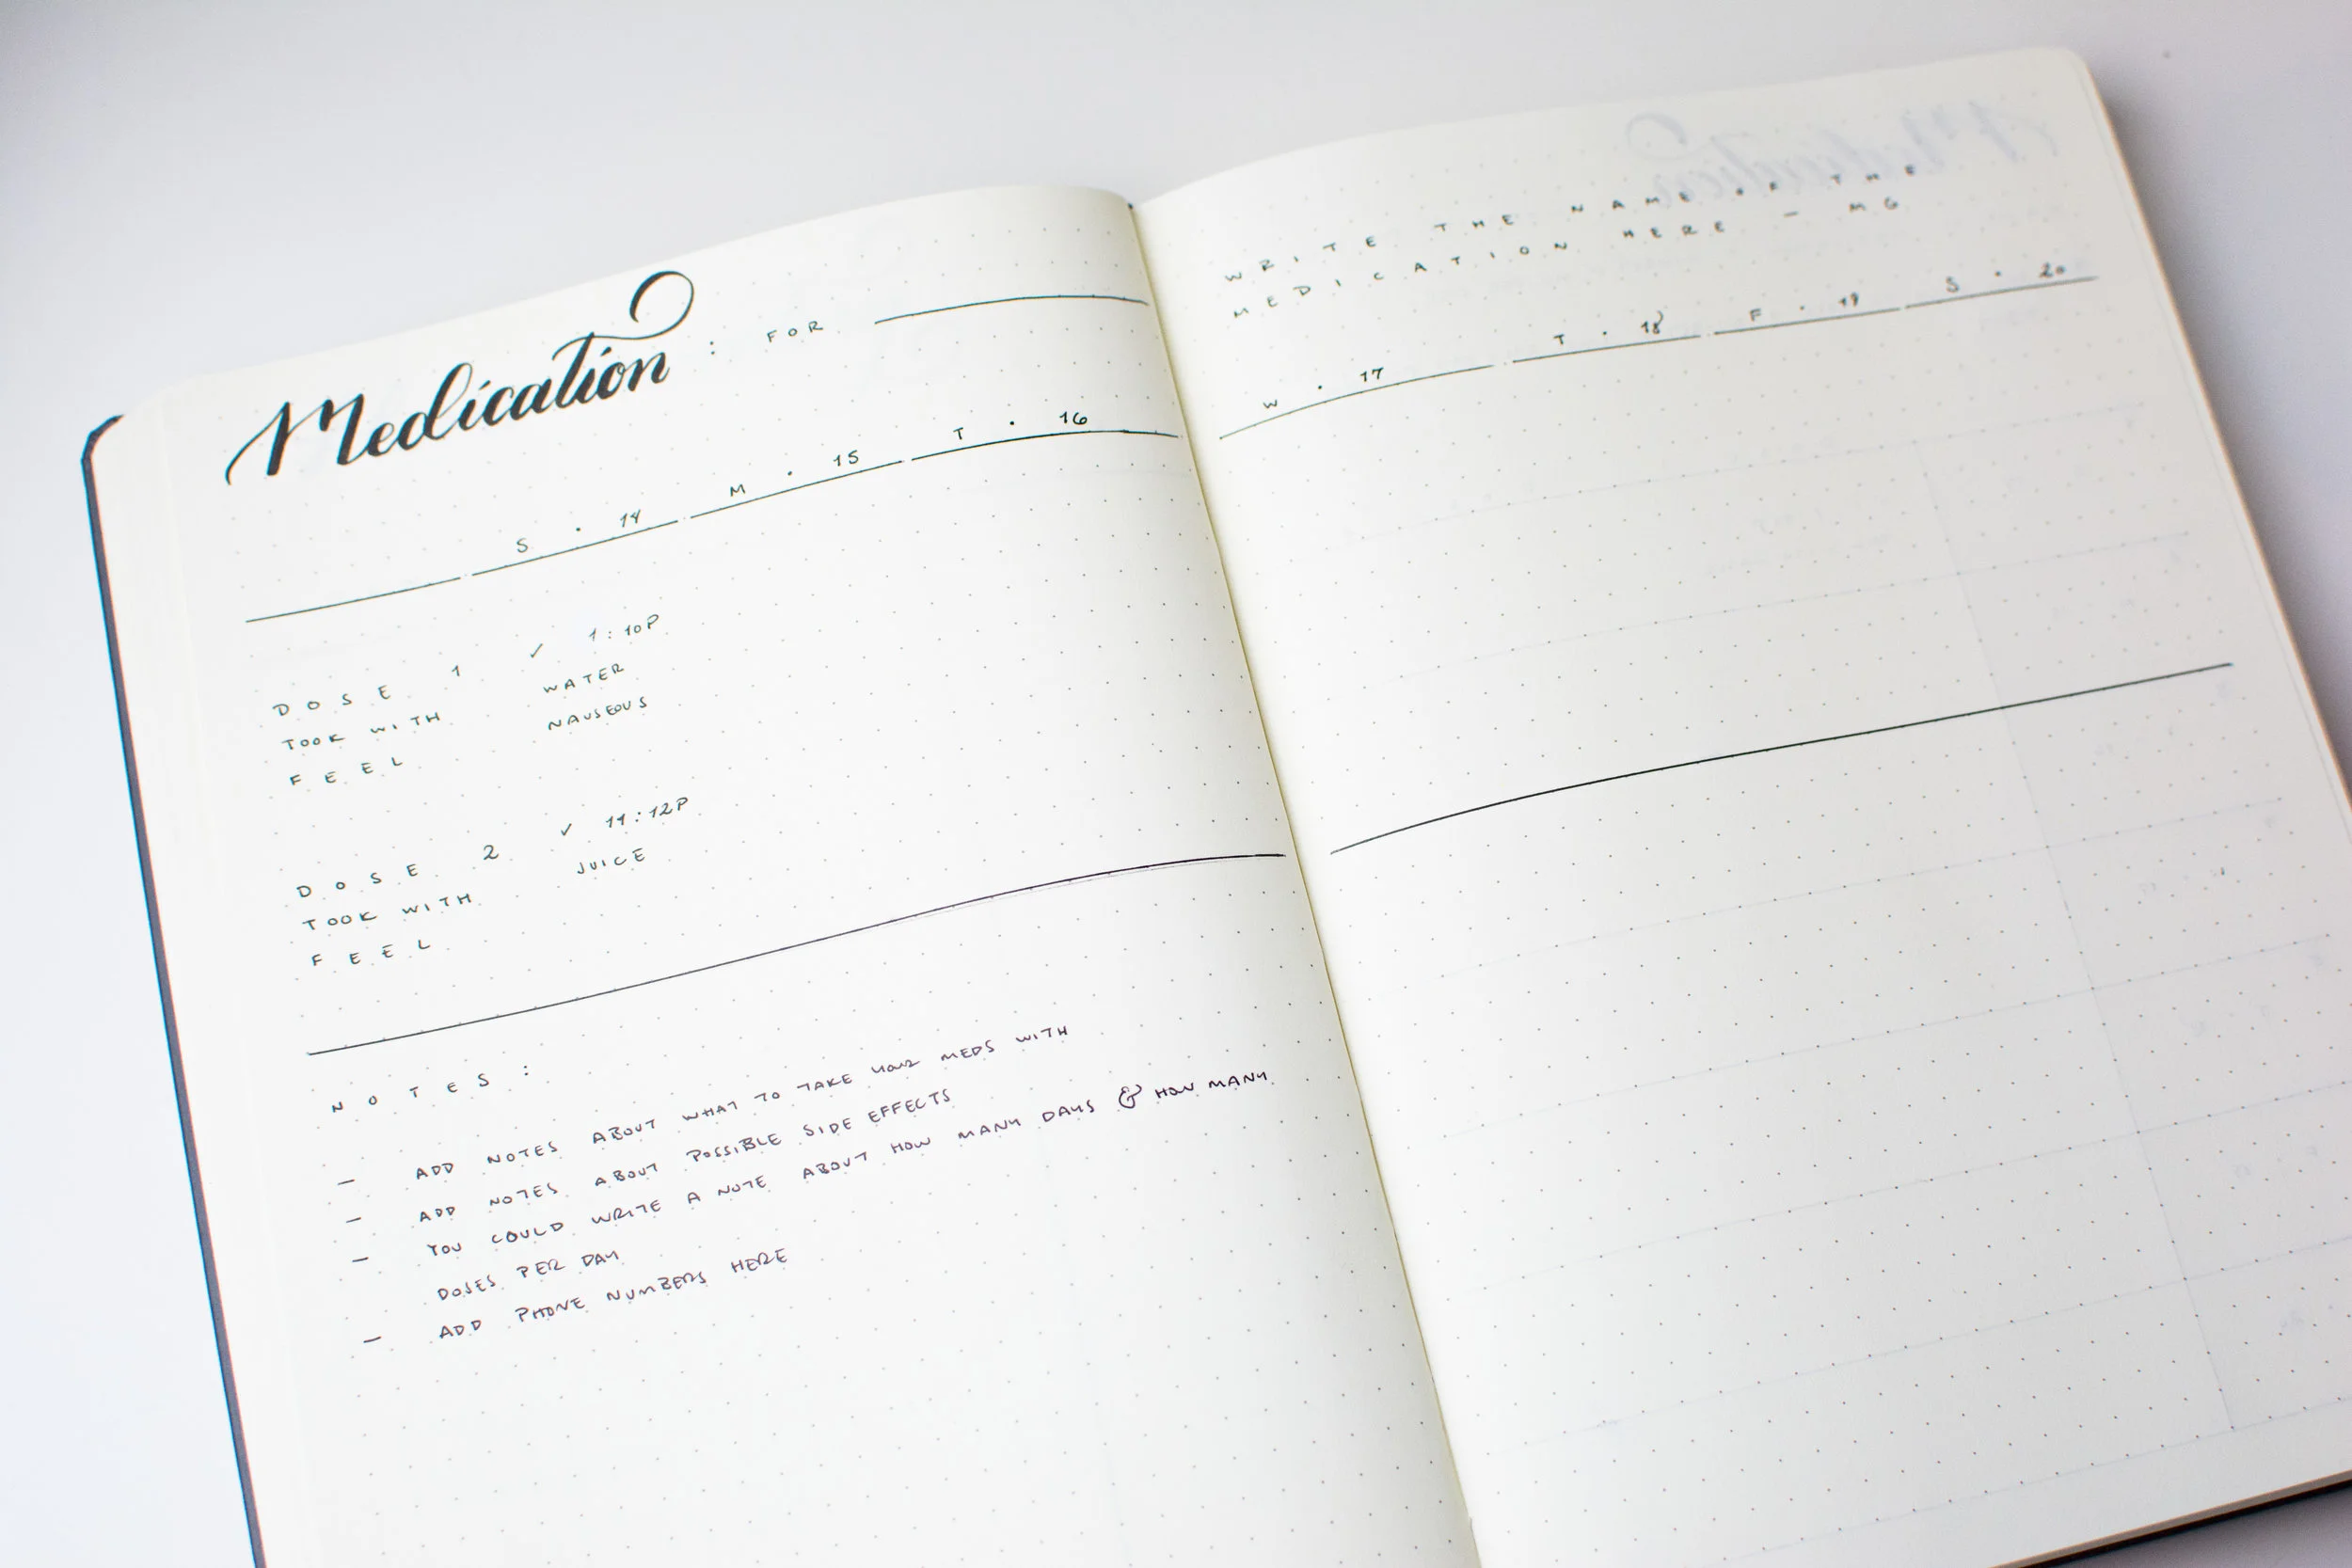 Medication : FOR
S · 14 M · 15 T · 16
DOSE 1 ✓ 1:10P
TOOK WITH WATER
FEEL NAUSEOUS
DOSE 2 ✓ 11:12P
TOOK WITH JUICE
FEEL
NOTES:
— ADD NOTES ABOUT WHAT TO TAKE YOUR MEDS WITH
— ADD NOTES ABOUT POSSIBLE SIDE EFFECTS
— YOU COULD WRITE A NOTE ABOUT HOW MANY DAYS & HOW MANY
DOSES PER DAY
— ADD PHONE NUMBERS HERE
WRITE THE NAME OF THE
MEDICATION HERE – MG
W · 17 T · 18 F · 19 S · 20